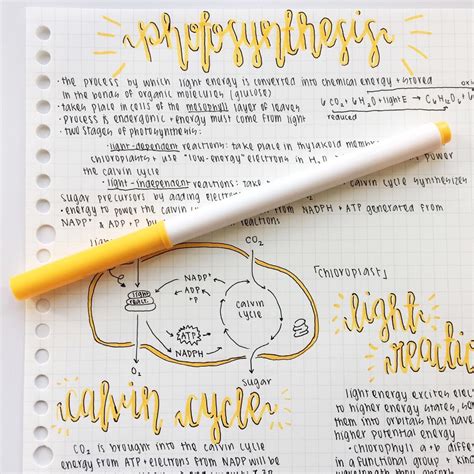 photosynthesis
· the process by which light energy is converted into chemical energy + stored
in the bonds of organic molecules (glulose)
oxidized
· takes place in cells of the mesophyll layer of leaves
6CO₂ + 6H₂O + light E → C₆H₁₂O₆ +
reduced
· process is endergonic + energy must come from light
· two stages of photosynthesis:
· light-dependent reactions: take place in thylakoid
chloroplasts + use "low-energy" electrons in H₂O
the calvin cycle
· light-independent reactions: calvin cycle synthesizes
sugar precursors by adding
· energy to power the calvin NADPH + ATP generated from
NADP⁺ & ADP + P by reactions
light
CO₂
NADP⁺
ADP
+P
ATP
NADPH
light
react.
calvin
cycle
O₂
sugar
「chloroplast」
light
calvin cycle
CO₂ is brought into the calvin cycle
energy from ATP + electrons from NADPH will be
light energy excites
to higher energy states,
them into orbitals that have
higher potential energy
· chlorophyll a+b
in a functional group +